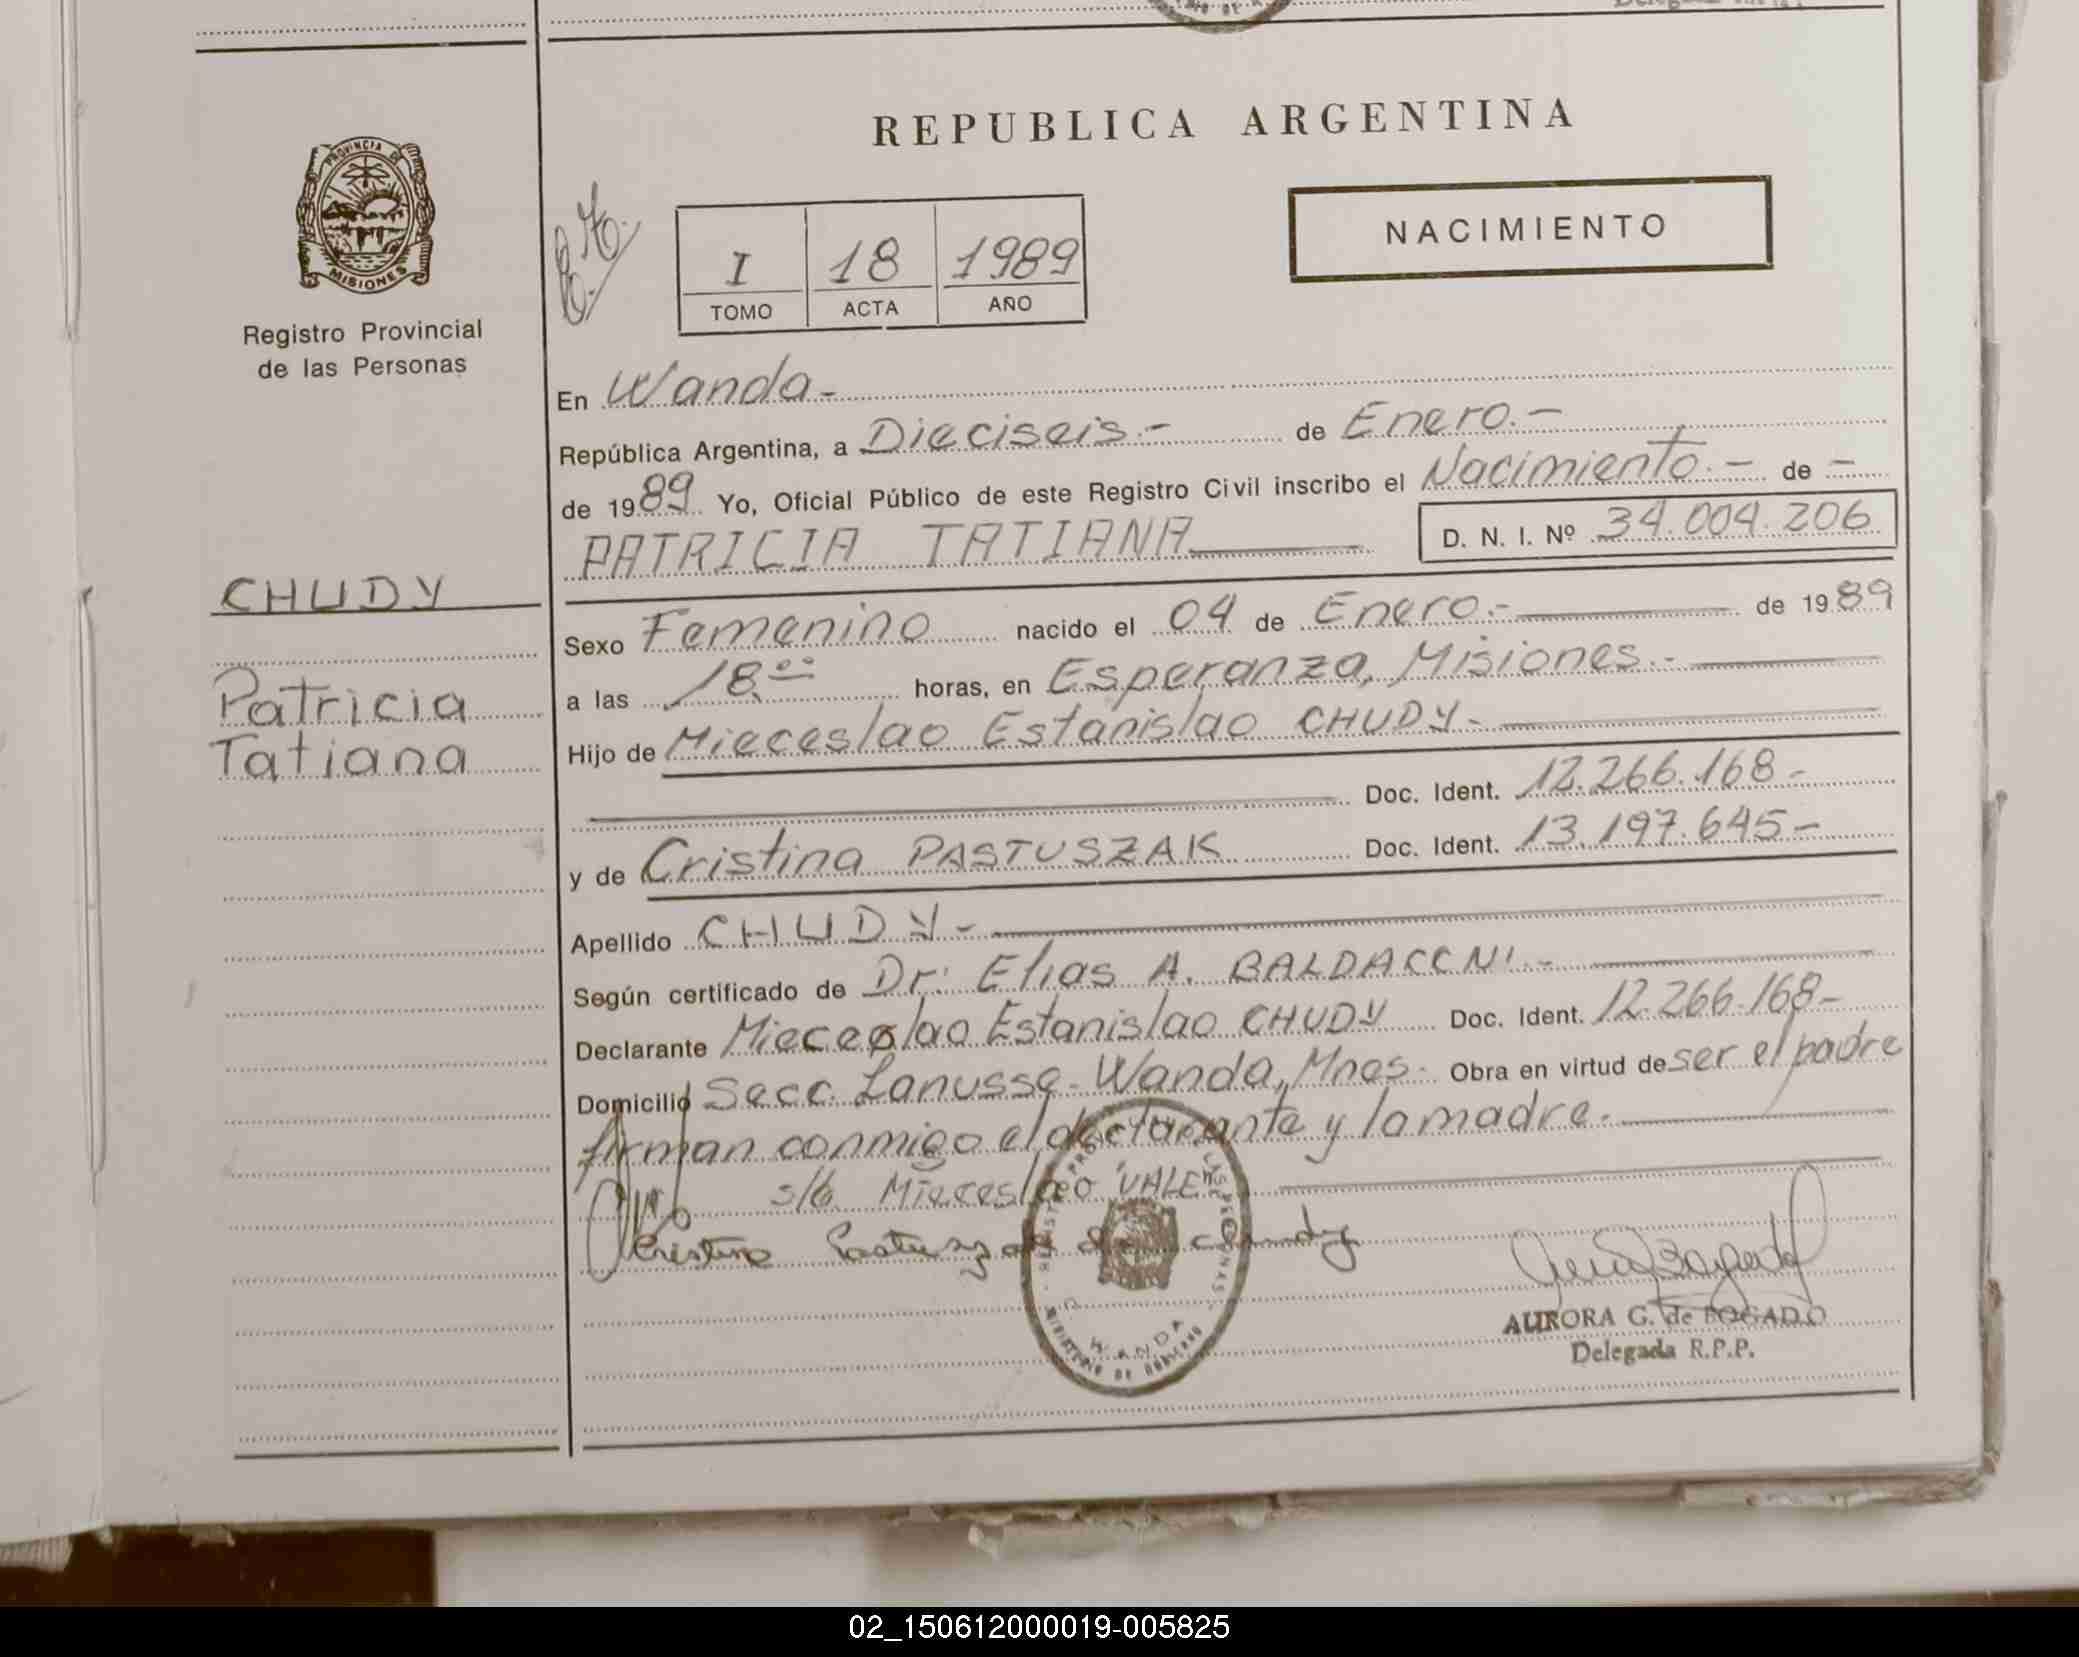 REPUBLICA ARGENTINA
PROVINCIA DE
MISIONES
Registro Provincial
de las Personas
NACIMIENTO
I 18 1989
TOMO ACTA AÑO
En Wanda.-
República Argentina, a Dieciseis.- de Enero.-
de 1989 Yo, Oficial Público de este Registro Civil inscribo el Nacimiento.- de -
PATRICIA TATIANA D. N. I. Nº 34.004.206
CHUDY
Patricia
Tatiana
Sexo Femenino nacido el 04 de Enero.- de 1989
a las 18.ºº horas, en Esperanza, Misiones.-
Hijo de Mieceslao Estanislao CHUDY-
Doc. Ident. 12.266.168-
y de Cristina PASTUSZAK Doc. Ident. 13.197.645-
Apellido CHUDY-
Según certificado de Dr: Elias A. BALDACCNI.-
Declarante Mieceslao Estanislao CHUDY Doc. Ident. 12.266.168-
Domicilio Secc. Lanusse- Wanda, Mnes. Obra en virtud de ser el padre
firman conmigo el declarante y la madre.-
s/b Mieceslao "VALE"
Cristina Pastuszak de Chudy
WANDA
MINISTERIO DE GOBIERNO
AURORA G. de BOGADO
Delegada R.P.P.
02_150612000019-005825